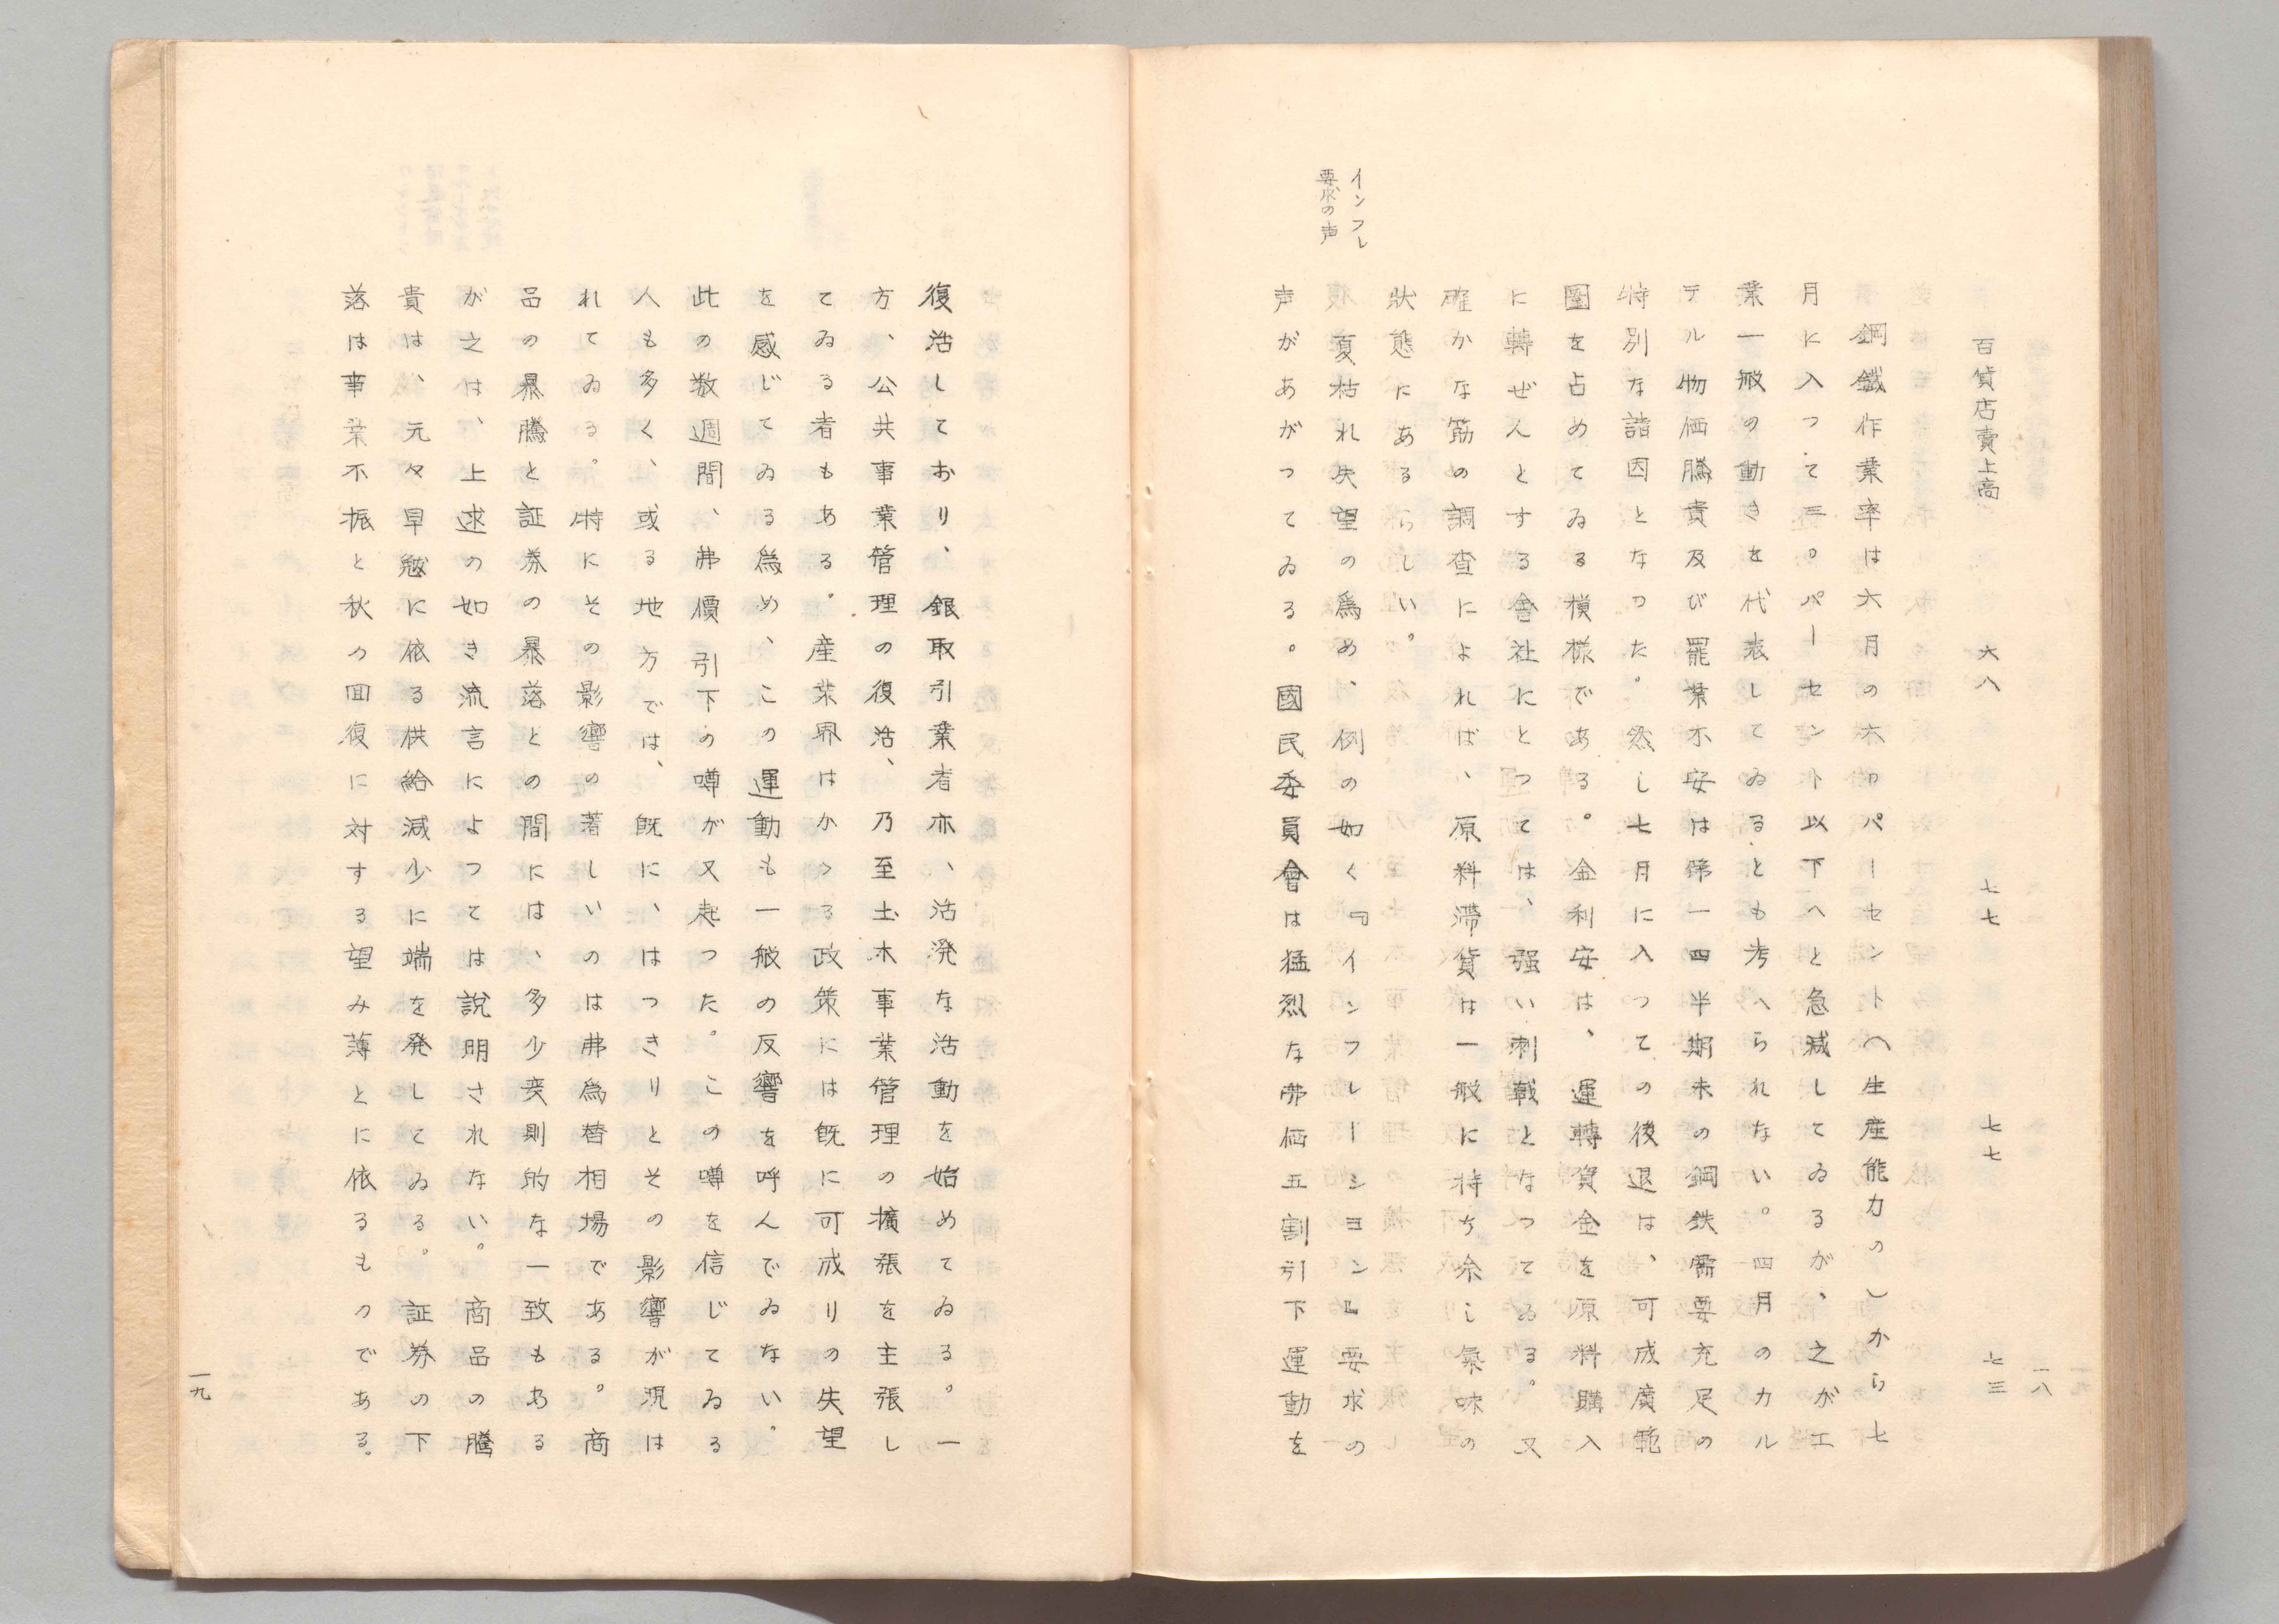 一八
百貨店賣上高 六八 七七 七七 七三
鋼鐵作業率は六月の六〇パーセント(生産能力の)から七
月に入つて三〇パーセント以下へと急減してゐるが、之が工
業一般の動きを代表してゐるとも考へられない。四月のカル
テル物価騰貴及び罷業不安は第一四半期末の鋼鉄需要充足の
特別な誘因となつた。然し七月に入つての後退は、可成廣範
圍を占めてゐる模様である。金利安は、運轉資金を原料購入
に轉ぜんとする會社にとつては、强い刺戟となつてゐる。又
確かな筋の調査によれば、原料滞貨は一般に持ち余し氣味の
狀態にあるらしい。
インフレ
要求の声
夏枯れ失望の爲め、例の如く『インフレーシヨン』要求の
声があがつてゐる。國民委員會は猛烈な弗価五割引下運動を
復活しており、銀取引業者亦、活溌な活動を始めてゐる。一
方、公共事業管理の復活、乃至土木事業管理の擴張を主張し
てゐる者もある。産業界はかゝる政策には既に可成りの失望
を感じてゐる爲め、この運動も一般の反響を呼んでゐない。
此の数週間、弗價引下の噂が又起つた。この噂を信じてゐる
人も多く、或る地方では、既に、はつきりとその影響が現は
れてゐる。特にその影響の著しいのは弗爲替相場である。商
品の暴騰と証券の暴落との間には、多少変則的な一致もある
が之は、上述の如き流言によつては說明されない。商品の騰
貴は、元々旱魃に依る供給減少に端を発してゐる。証券の下
落は事業不振と秋の回復に対する望み薄とに依るものである。
一九